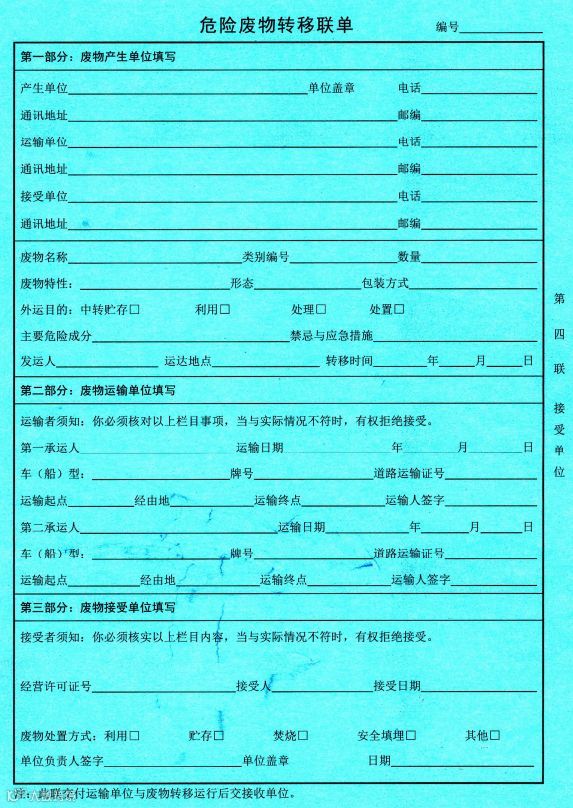 危险废物转移联单 编号
第一部分：废物产生单位填写
产生单位 单位盖章 电话
通讯地址 邮编
运输单位 电话
通讯地址 邮编
接受单位 电话
通讯地址 邮编
废物名称 类别编号 数量
废物特性： 形态 包装方式
外运目的：中转贮存□ 利用□ 处理□ 处置□
主要危险成分 禁忌与应急措施
发运人 运达地点 转移时间 年 月 日
第二部分：废物运输单位填写
运输者须知：你必须核对以上栏目事项，当与实际情况不符时，有权拒绝接受。
第一承运人 运输日期 年 月 日
车（船）型： 牌号 道路运输证号
运输起点 经由地 运输终点 运输人签字
第二承运人 运输日期 年 月 日
车（船）型： 牌号 道路运输证号
运输起点 经由地 运输终点 运输人签字
第三部分：废物接受单位填写
接受者须知：你必须核实以上栏目内容，当与实际情况不符时，有权拒绝接受。
经营许可证号 接受人 接受日期
废物处置方式：利用□ 贮存□ 焚烧□ 安全填埋□ 其他□
单位负责人签字 单位盖章 日期
注：此联交付运输单位与废物转移运行后交接收单位。
第四联 接受单位